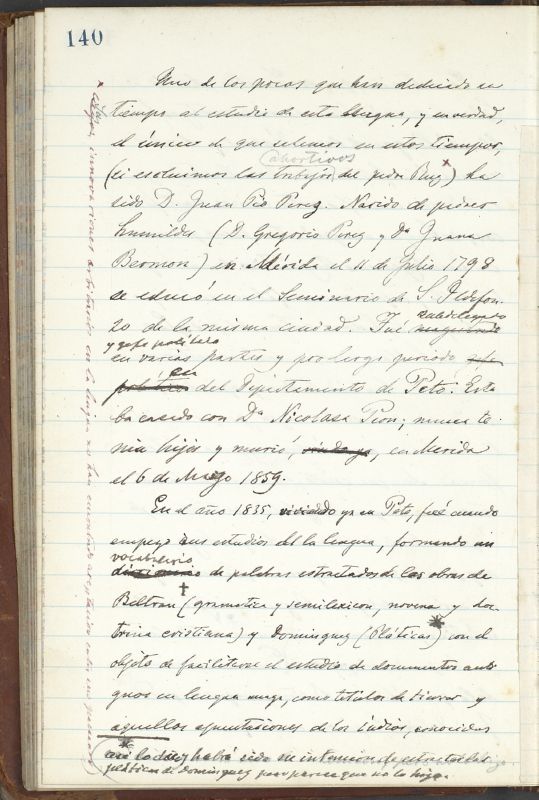 140
Uno de los pocos que han dedicado su
tiempo al estudio de esta lengua, y en verdad,
el único de que sabemos en estos tiempos,
abortivos
(si escluimos los trabajos del padre Ruz ×) ha
sido D. Juan Pio Perez. Nacido de padres
humildes (D. Gregorio Perez y Dª Juana
Bermon) en Mérida el 11 de Julio 1798
se educó en el Seminario de S. Ildefon-
zo de la misma ciudad. Fué
subdelegado
y gefe politico
en varias partes y por largo periodo
en
politico del Departamento de Peto. Esta
ba casado con Dª Nicolasa Peon; nunca te
nia hijos y murió, en Merida
el 6 de Marzo 1859.
En el año 1835, viviendo ya en Peto, fué cuando
empezo sus estudios de la lengua, formando un
vocabulario
diccionario de palabras estractados de las obras de
Beltran † (gramatica y semilexicon, novena y doc
trina cristiana) y Dominguez (Pláticas) con el
objeto de facilitarse el estudio de documentos anti
guos en lengua maya, como titulos de tierras y
aquellos apuntaciones de los indios, conocidas
asi lo dice y habrá sido su intencion de estractar las
pláticas de Dominguez pero parece que no lo hizo.